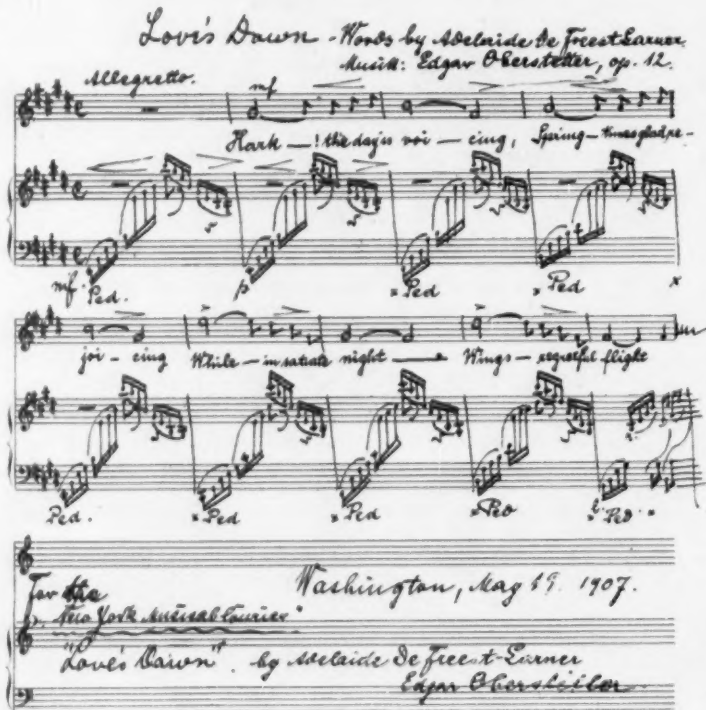 Love's Dawn - Words by Adelaide De Freest Larner.
Musik: Edgar Oberstetter, op. 12.
Allegretto.
mf
Hark —! the day's voi — cing, Spring — times glad re-
mf Ped. p × Ped × Ped ×
joi - cing While — insatiate night — Wings — regretful flight
Ped. × Ped × Ped × Ped × Ped. ×
For the Washington, May 19. 1907.
New York Musical Courier"
"Love's Dawn". by Adelaide De Freest-Larner
Edgar Oberstetter